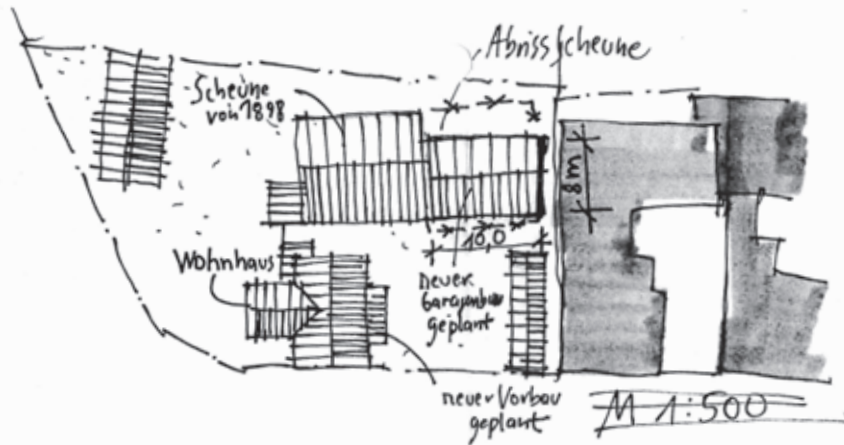 Abriss Scheune
Scheune
von 1898
8m
10,0
Wohnhaus
neuer
Garagenbau
geplant
neuer Vorbau
geplant
M 1:500